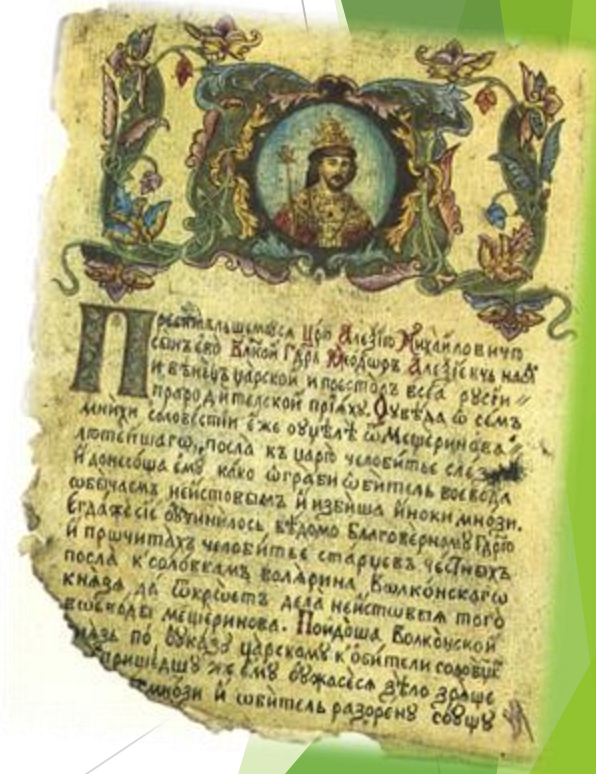 Преставльшемуся Црю Алеѯию Михайловичю
сынъ ево Вликой Гдрь Ѳеодωръ Алеѯіевичь
и вѣнецъ царской и престолъ всеа русеи
прародителской прїяху. Оувѣда ѿ семъ
мниxи соловестїи еже оуцѣлѣ ѿ Мещеринова
лютейшагω, посла къ царю челобитье
й донесоша емꙋ како ѡграби ѡбитель воевода
ѡбычаемъ неистовымъ й избиша йноки мнози.
Егда же сіе оучинилось вѣдомо благоверномꙋ Гдрю
й прωчитахъ челобитье старцевъ честныхъ
посла к соловкамъ болярина Вωлконскагω
князя да ѿкрыетъ дела неистωвыя того
воеводы мещеринова. Поидоша Волконской
князь по оуказꙋ царскомꙋ к обители
пришедшꙋ же емꙋ оужасеся зѣло зряще
мнози й ωбитель разоренꙋ сꙋщꙋ